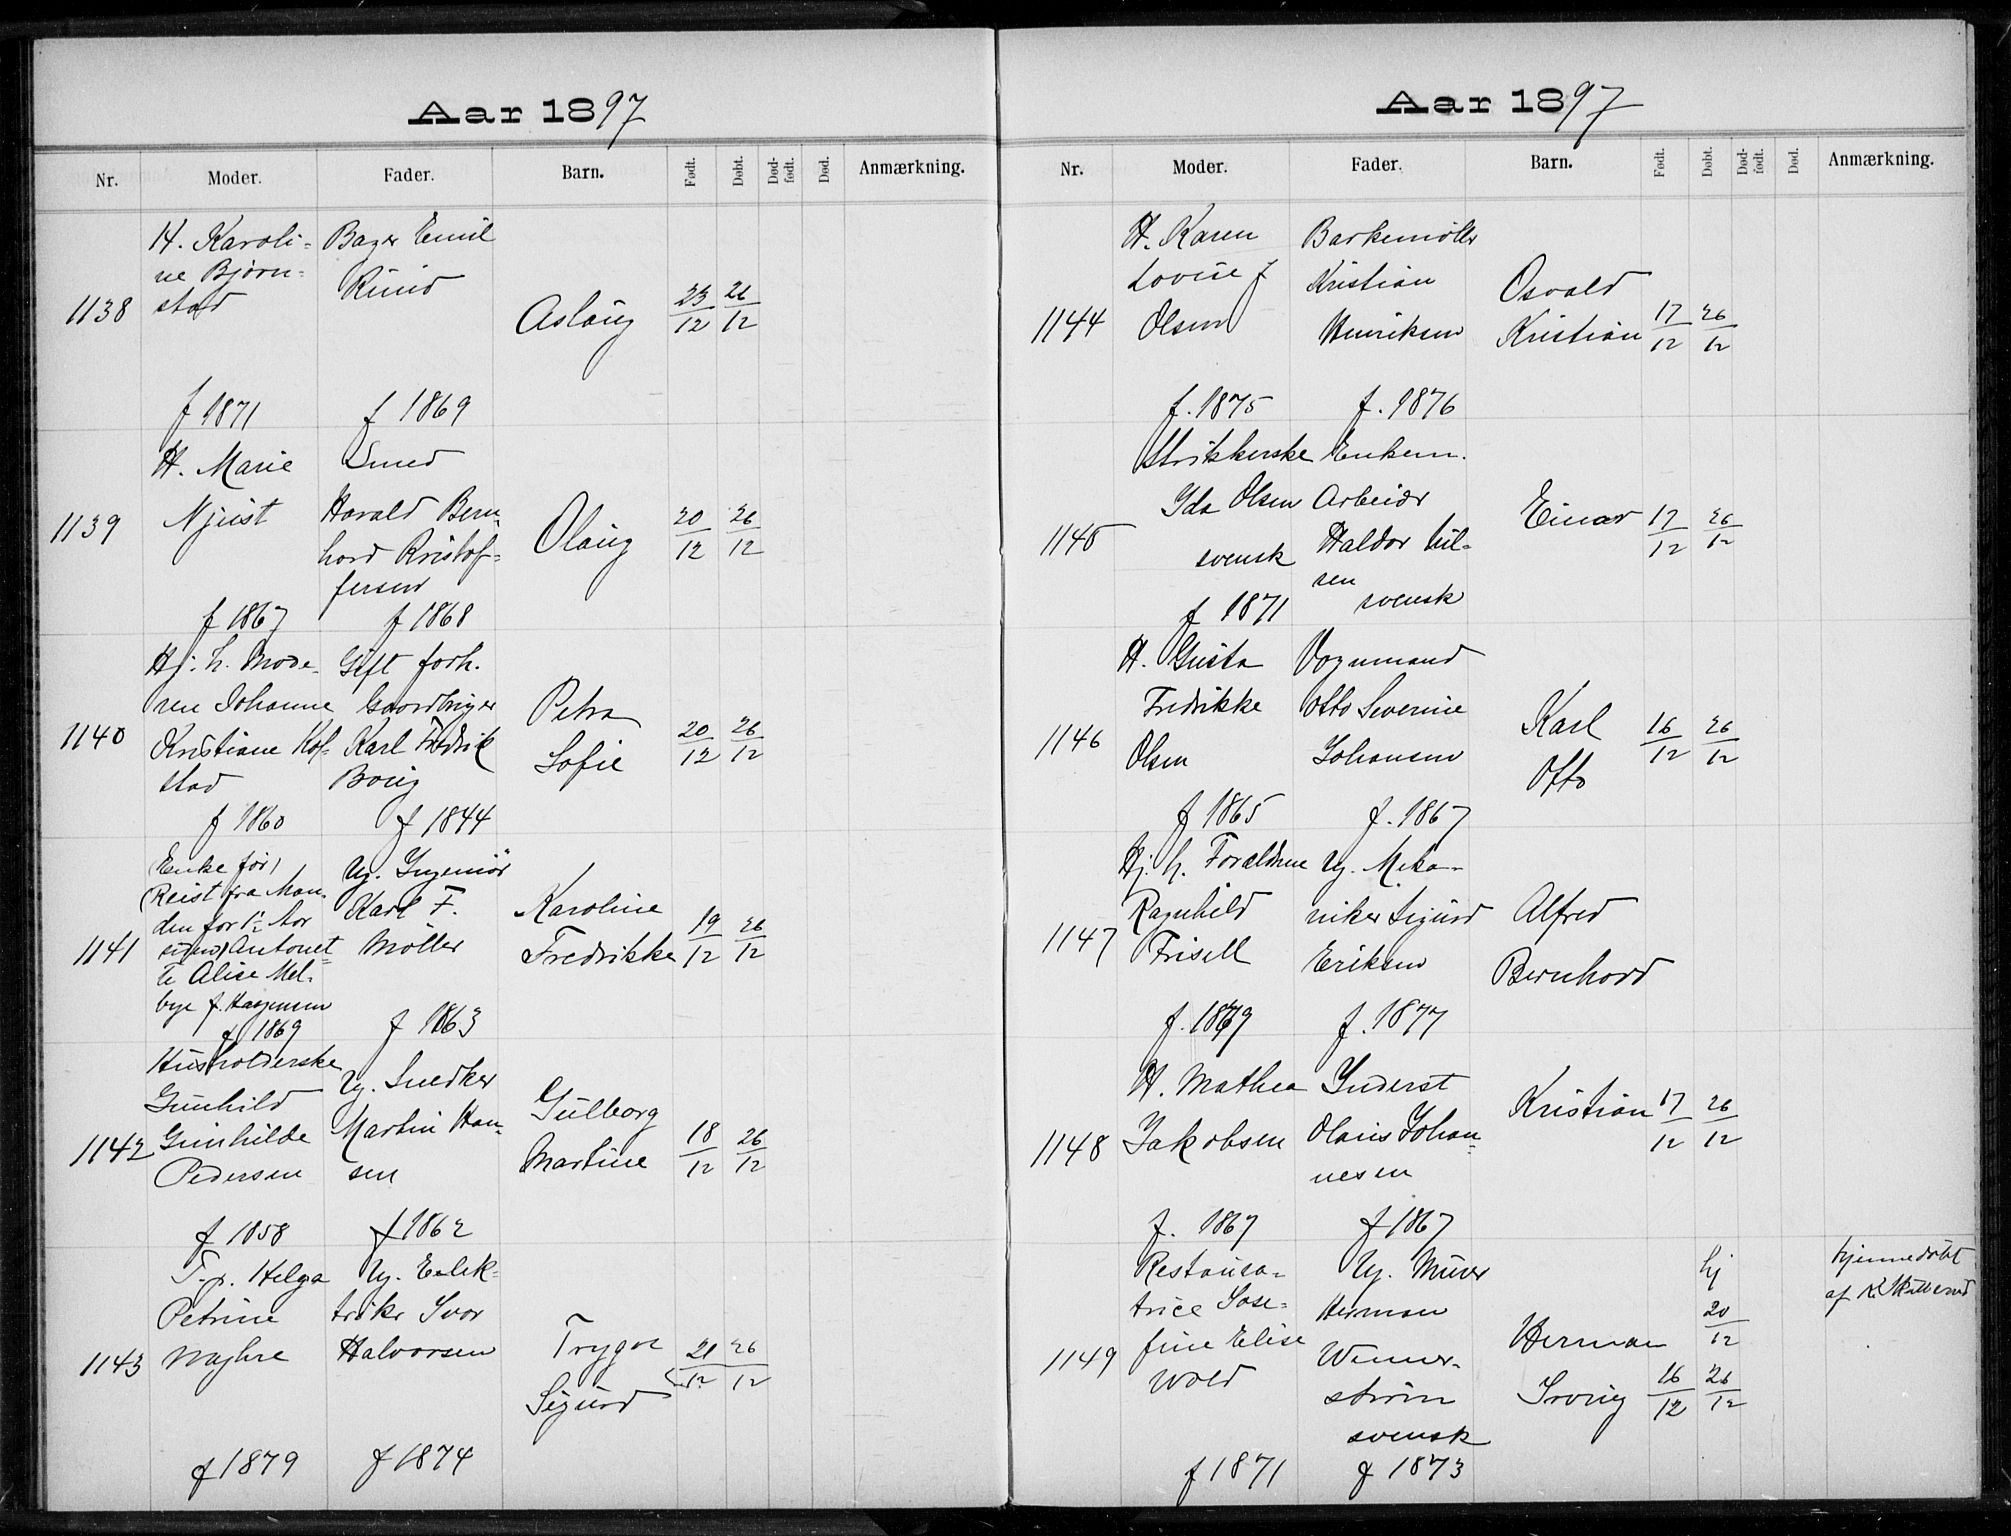 Aar 1897
Nr. Moder. Fader. Barn. Født. Døbt. Død-født. Død. Anmærkning.
1138
H. Karoli-
ne Bjørn-
stad
f 1871
Bager Emil
Ruud
f 1869
Aslaug
23/12 26/12
1139
H. Marie
Njust
f 1867
Smed
Harald Bern-
hard Kristof-
fersen
f 1868
Olaug
20/12 26/12
1140
Hj. h. Mode-
ren Johanne
Kristiane Kol-
stad
f 1860
Gift forh.
Gaardbruger
Karl Fredrik
Borg
f 1844
Petra
Sofie
20/12 26/12
1141
(Enke før)
(Reist fra Man-
den for 1½ Aar
siden) Antonet-
te Alise Mel-
bye f.
f 1869
Ug. Ingeniør
Karl F.
Møller
f 1863
Karoline
Fredrikke
19/12 26/12
1142
Husholderske
Gunhild
Gunhilde
Pedersen
f 1858
Ug. Snedker
Martin Han-
sen
f 1862
Gulborg
Martine
18/12 26/12
1143
T.p. Helga
Petrine
f 1879
Ug. Elek-
triker Ivar
Halvorsen
f 1874
Trygve
Sigurd
21/12 26/12
Aar 1897
Nr. Moder. Fader. Barn. Født. Døbt. Død-født. Død. Anmærkning.
1144
H. Karen
Lovise f
Olsen
f. 1875
Barkemøller
Kristian
Henriksen
f. 1876
Osvald
Kristian
17/12 26/12
1145
Strikkerske
Ida Olsen
svensk
f 1871
Enkem.
Arbeider
Haldor Nil-
sen
svensk
Einar
17/12 26/12
1146
H. Gusta
Fredrikke
Olsen
f 1865
Vognmand
Otto Severine
Johansen
f. 1867
Karl
Otto
16/12 26/12
1147
Hj. h. Forældrene
Ragnhild
Frisell
f. 1879
Ug. Meka-
niker Sigurd
Eriksen
f. 1877
Alfred
Bernhard
1148
H. Mathea
Jakobsen
f. 1867
Inderst
Olaus Johan-
nesen
f 1867
Kristian
17/12 26/12
1149
Restaura-
trice Jose-
fine Elise
Wold
f 1871
Ug. Murer
Herman
Wenner-
strøm
svensk
f 1873
Herman
Irving
16/12
hj
20/12
26/12
hjemmedøbt
af K.